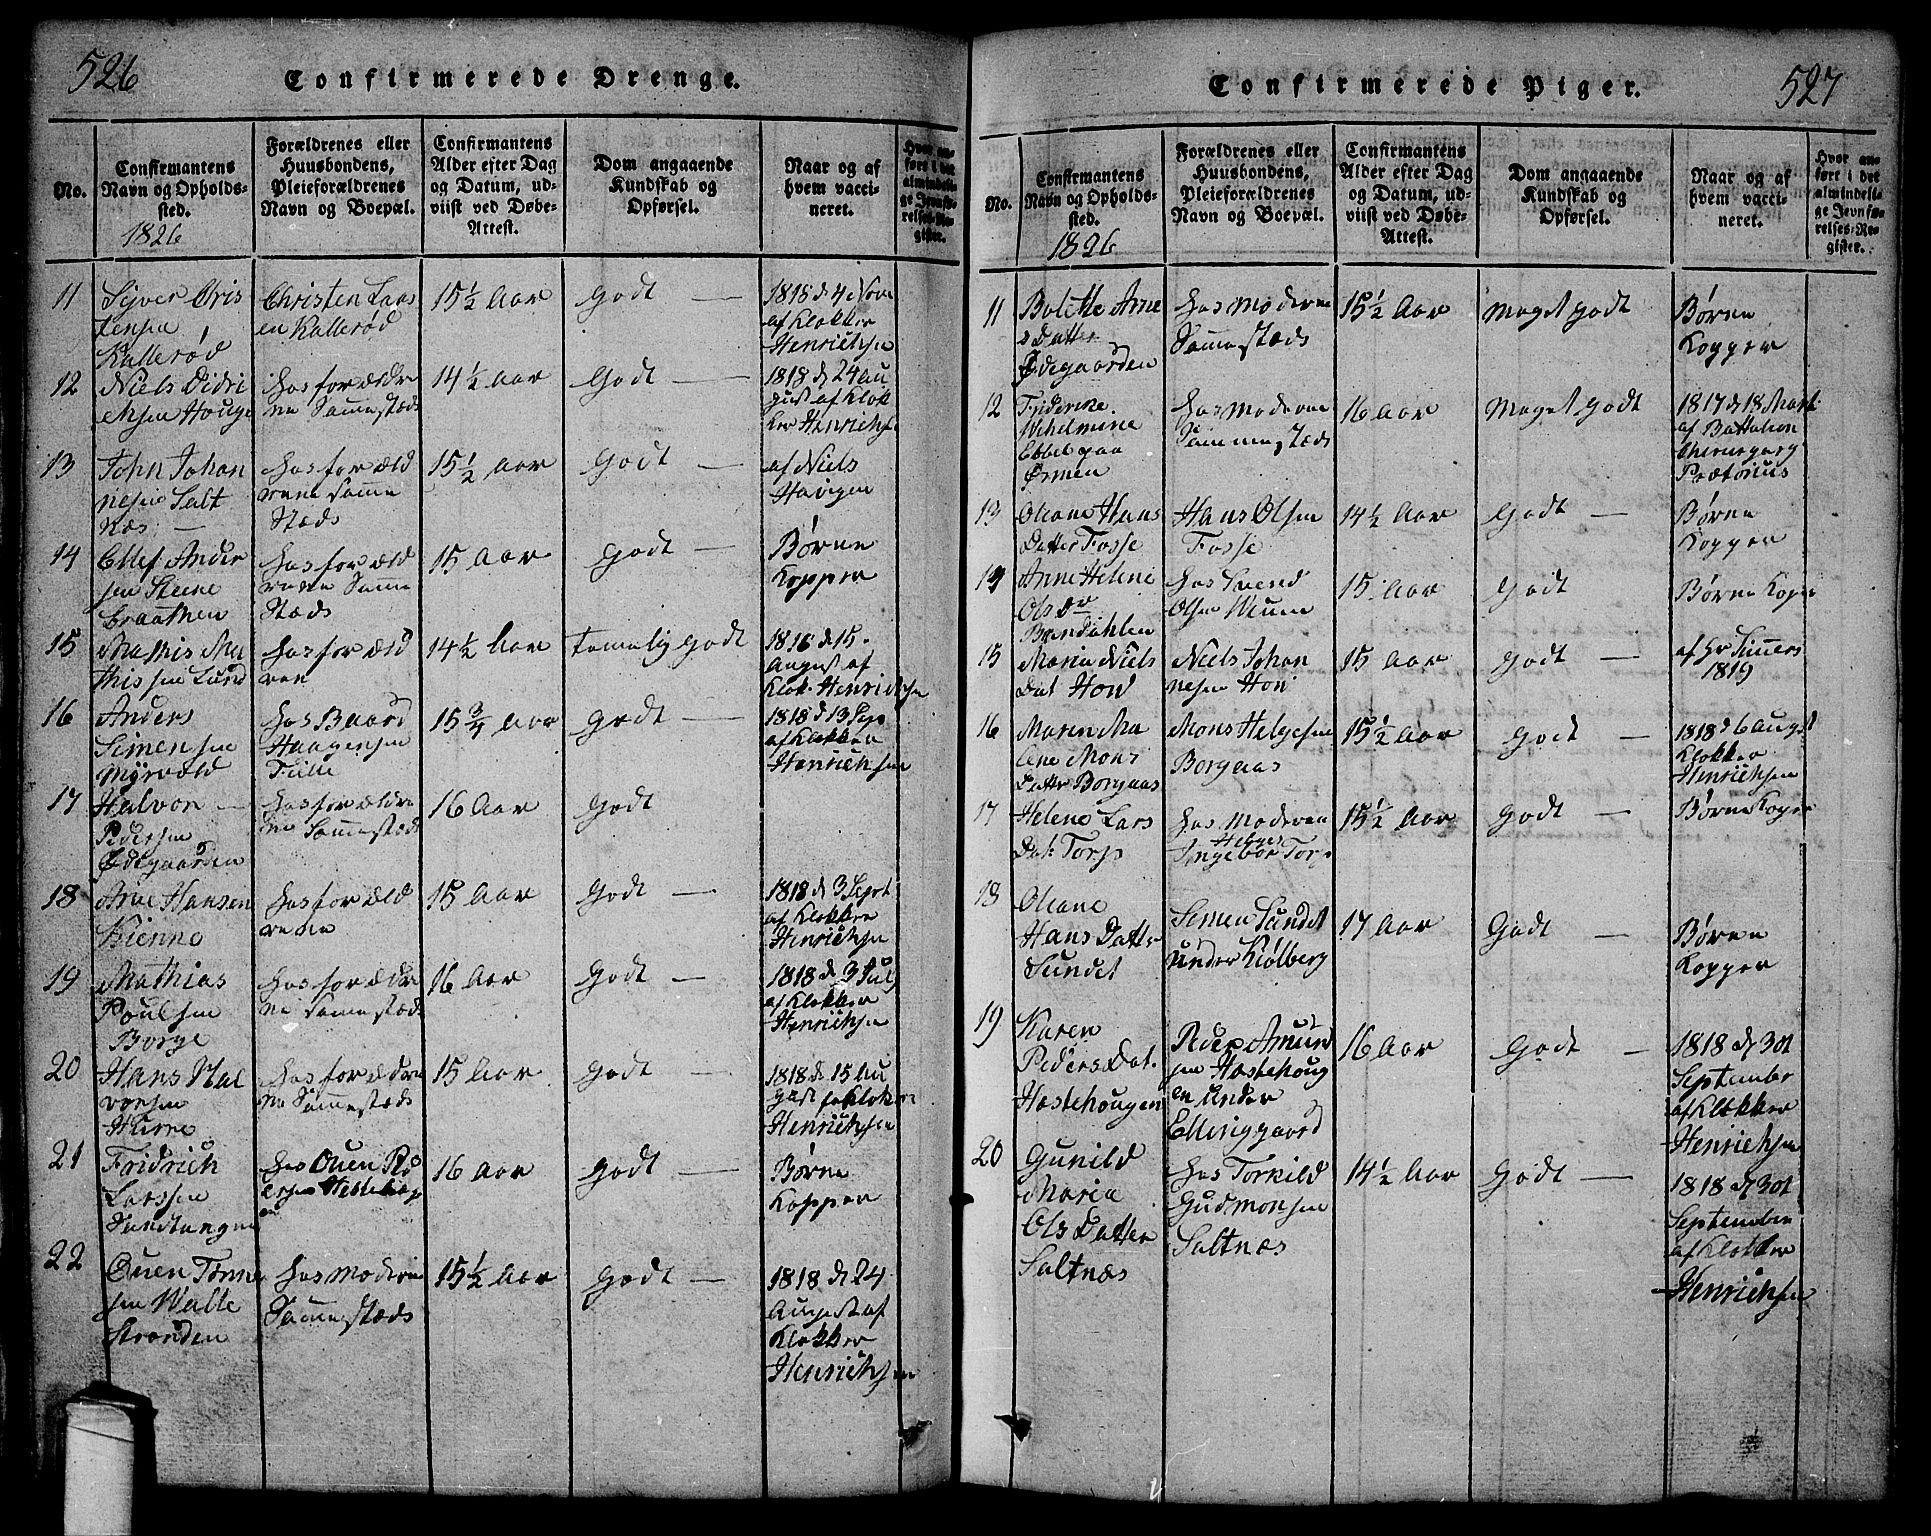 526
Confirmerede Drenge.
No.
Confirmantens
Navn og Opholds-
sted.
1826
Forældrenes eller
Huusbondens,
Pleieforældrenes
Navn og Boepæl.
Confirmantens
Alder efter Dag
og Datum, ud-
viist ved Døbe-
Attest.
Dom angaaende
Kundskab og
Opførsel.
Naar og af
hvem vacci-
neret.
Hvor an-
ført i det
almindeli-
ge Jevnfø-
relses-Re-
gister.
11
Sÿver Cris
tensen
Kallerød
Christen Lars
en Kallerød
15 ½ Aar
Godt —
1818 d 4
af Klokker
Henrichsen
12
Niels Didri
chsen Houge
hos forældre
ne Sammestæds
14 ½ Aar
Godt —
1818 d 24 Au
gust af Klok
ker Henrichse
13
John Johan
nesen Salt
næs —
hos foræld
rene samme
stæds
15 ½ Aar
Godt —
af Niels
Havigen
14
Ollef Ander
sen Steene
braathen
hos foræld
rene Samme
Stæds
15 Aar
Godt —
Børne
Kopper
15
Mathis Ma
thissen Lund
hos foræld
ren
14 ½ Aar
temelig godt
1816 d 15.
August af
Klok. Henrichsen
16
Anders
Simensen
Myrvold
hos Baard
Haagensen
Fülle
15 ¾ Aar
Godt —
1818 d 13 Sep
af Klokker
Henrichsen
17
Halvor —
Pedersen
Ødegaarden
hos forældre
ne Sammestæds
16 Aar
Godt
18
Arne Hansen
Kienne
hos foræld
rene
15 Aar
Godt —
1818 d 3 Sept
af Klokker
Henrichsen
19
Mathias
Poulsen
Borge
hos forældre
ne Sammestæds
16 Aar
Godt —
1818 d 3 Jul
af Klokker
Henrichsen
20
Hans Hal
vorsen
Hurre
hos forældre
ne Sammestæds
15 Aar
Godt —
1818 d 15 Au
gust af Klokker
Henrichsen
21
Fridrich
Larssen
Sandtangen
hos Ouen Pe
ersen
en
16 Aar
Godt —
Børne
Kopper
22
Ouen Tønne
sen Walle
Stranden
hos Moderen
Sammestæds
15 ½ Aar
Godt —
1818 d 24
August af
Klokker
Henrichsen
527
Confirmerede Piger.
No.
Confirmantens
Navn og Opholds-
sted.
1826
Forældrenes eller
Huusbondens,
Pleieforældrenes
Navn og Boepæl.
Confirmantens
Alder efter Dag
og Datum, ud-
viist ved Døbe-
Attest.
Dom angaaende
Kundskab og
Opførsel.
Naar og af
hvem vacci-
neret.
Hvor an-
ført i det
almindeli-
ge Jevnfø-
relses-Re-
gister.
11
Bolette Arne
s Datter
Ødegaarden
hos Moderen
Sammestæds
15 ½ Aar
Meget godt
Børne
Kopper
12
Friderike
Wilhelmine
Ebbel paa
Ørmen
hos Moderen
Sammestæds
16 Aar
Meget godt
1817 d 18 Mart
af Battalion
Chirurgus
Prætorius
13
Oliane Hans
Datter Fosse
Hans Olsen
Fosse
14 ½ Aar
Godt —
Børne
Kopper
14
Anne Helene
Ols Dr
Brendahlen
hos Svend
Olsen Muum
15 Aar
Godt
Børne Koper
15
Maria Niels
Dat. Hov
Niels Johan
nesen Hov
15 Aar
Godt —
af Hr
1819
16
Maren Ma
lene Mons
Datter Borgaas
Mons Helgesen
Borgaas
15 ½ Aar
Godt —
1818 d 6 Augst
Klokker
Henrichsen
17
Helene Lars
Dat. Torp
hos Moderen
Helges
Ingebor Torp
15 ½ Aar
Godt —
Børne Koper
18
Oliane
Hans Datter
Sundet
Simen Sundet
under Kiølberg
17 Aar
Godt —
Børne
Kopper
19
Karen
Peders Dat.
Hestehougen
Peder Amund
sen Hestehoug
en under
Ellinggaard
16 Aar
Godt —
1818 d 30t
September
af Klokker
Henrichsen
20
Gunild
Maria
Ols Datter
Saltnæs
hos Torkild
Gudmonsen
Saltnæs
14 ½ Aar
Godt —
1818 d 30t
September
af Klokker
Henrichsen